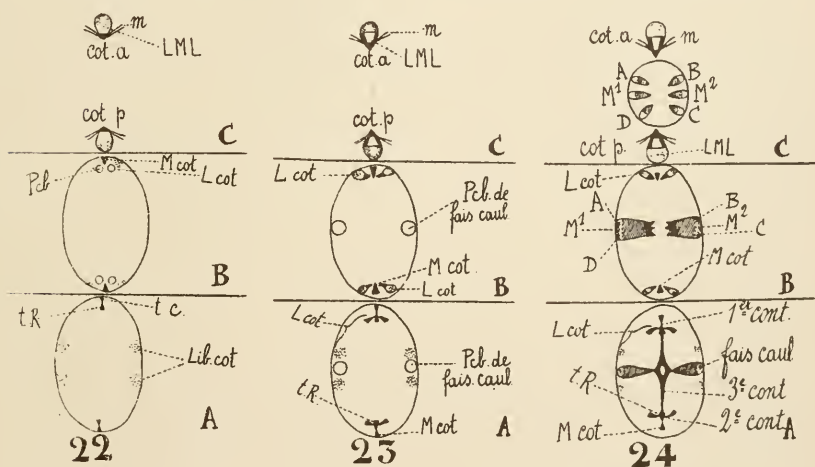 m
LML
cot.a
cot p
C
M cot
L cot
Pcb
B
t R
t c.
Lib.cot
A
22
m
LML
cot.a
cot.p
C
L cot
Pcb. de
fais caul
M cot.
L cot
B
L cot
Pcb. de
fais. caul
t.R
M cot
A
23
cot.a
m
A
B
M¹
M²
D
C
cot p.
LML
C
L cot
A
B
M¹
M²
C
D
M cot
B
L cot
1er cont.
fais caul
t.R
3e cont
M cot
2e cont
A
24